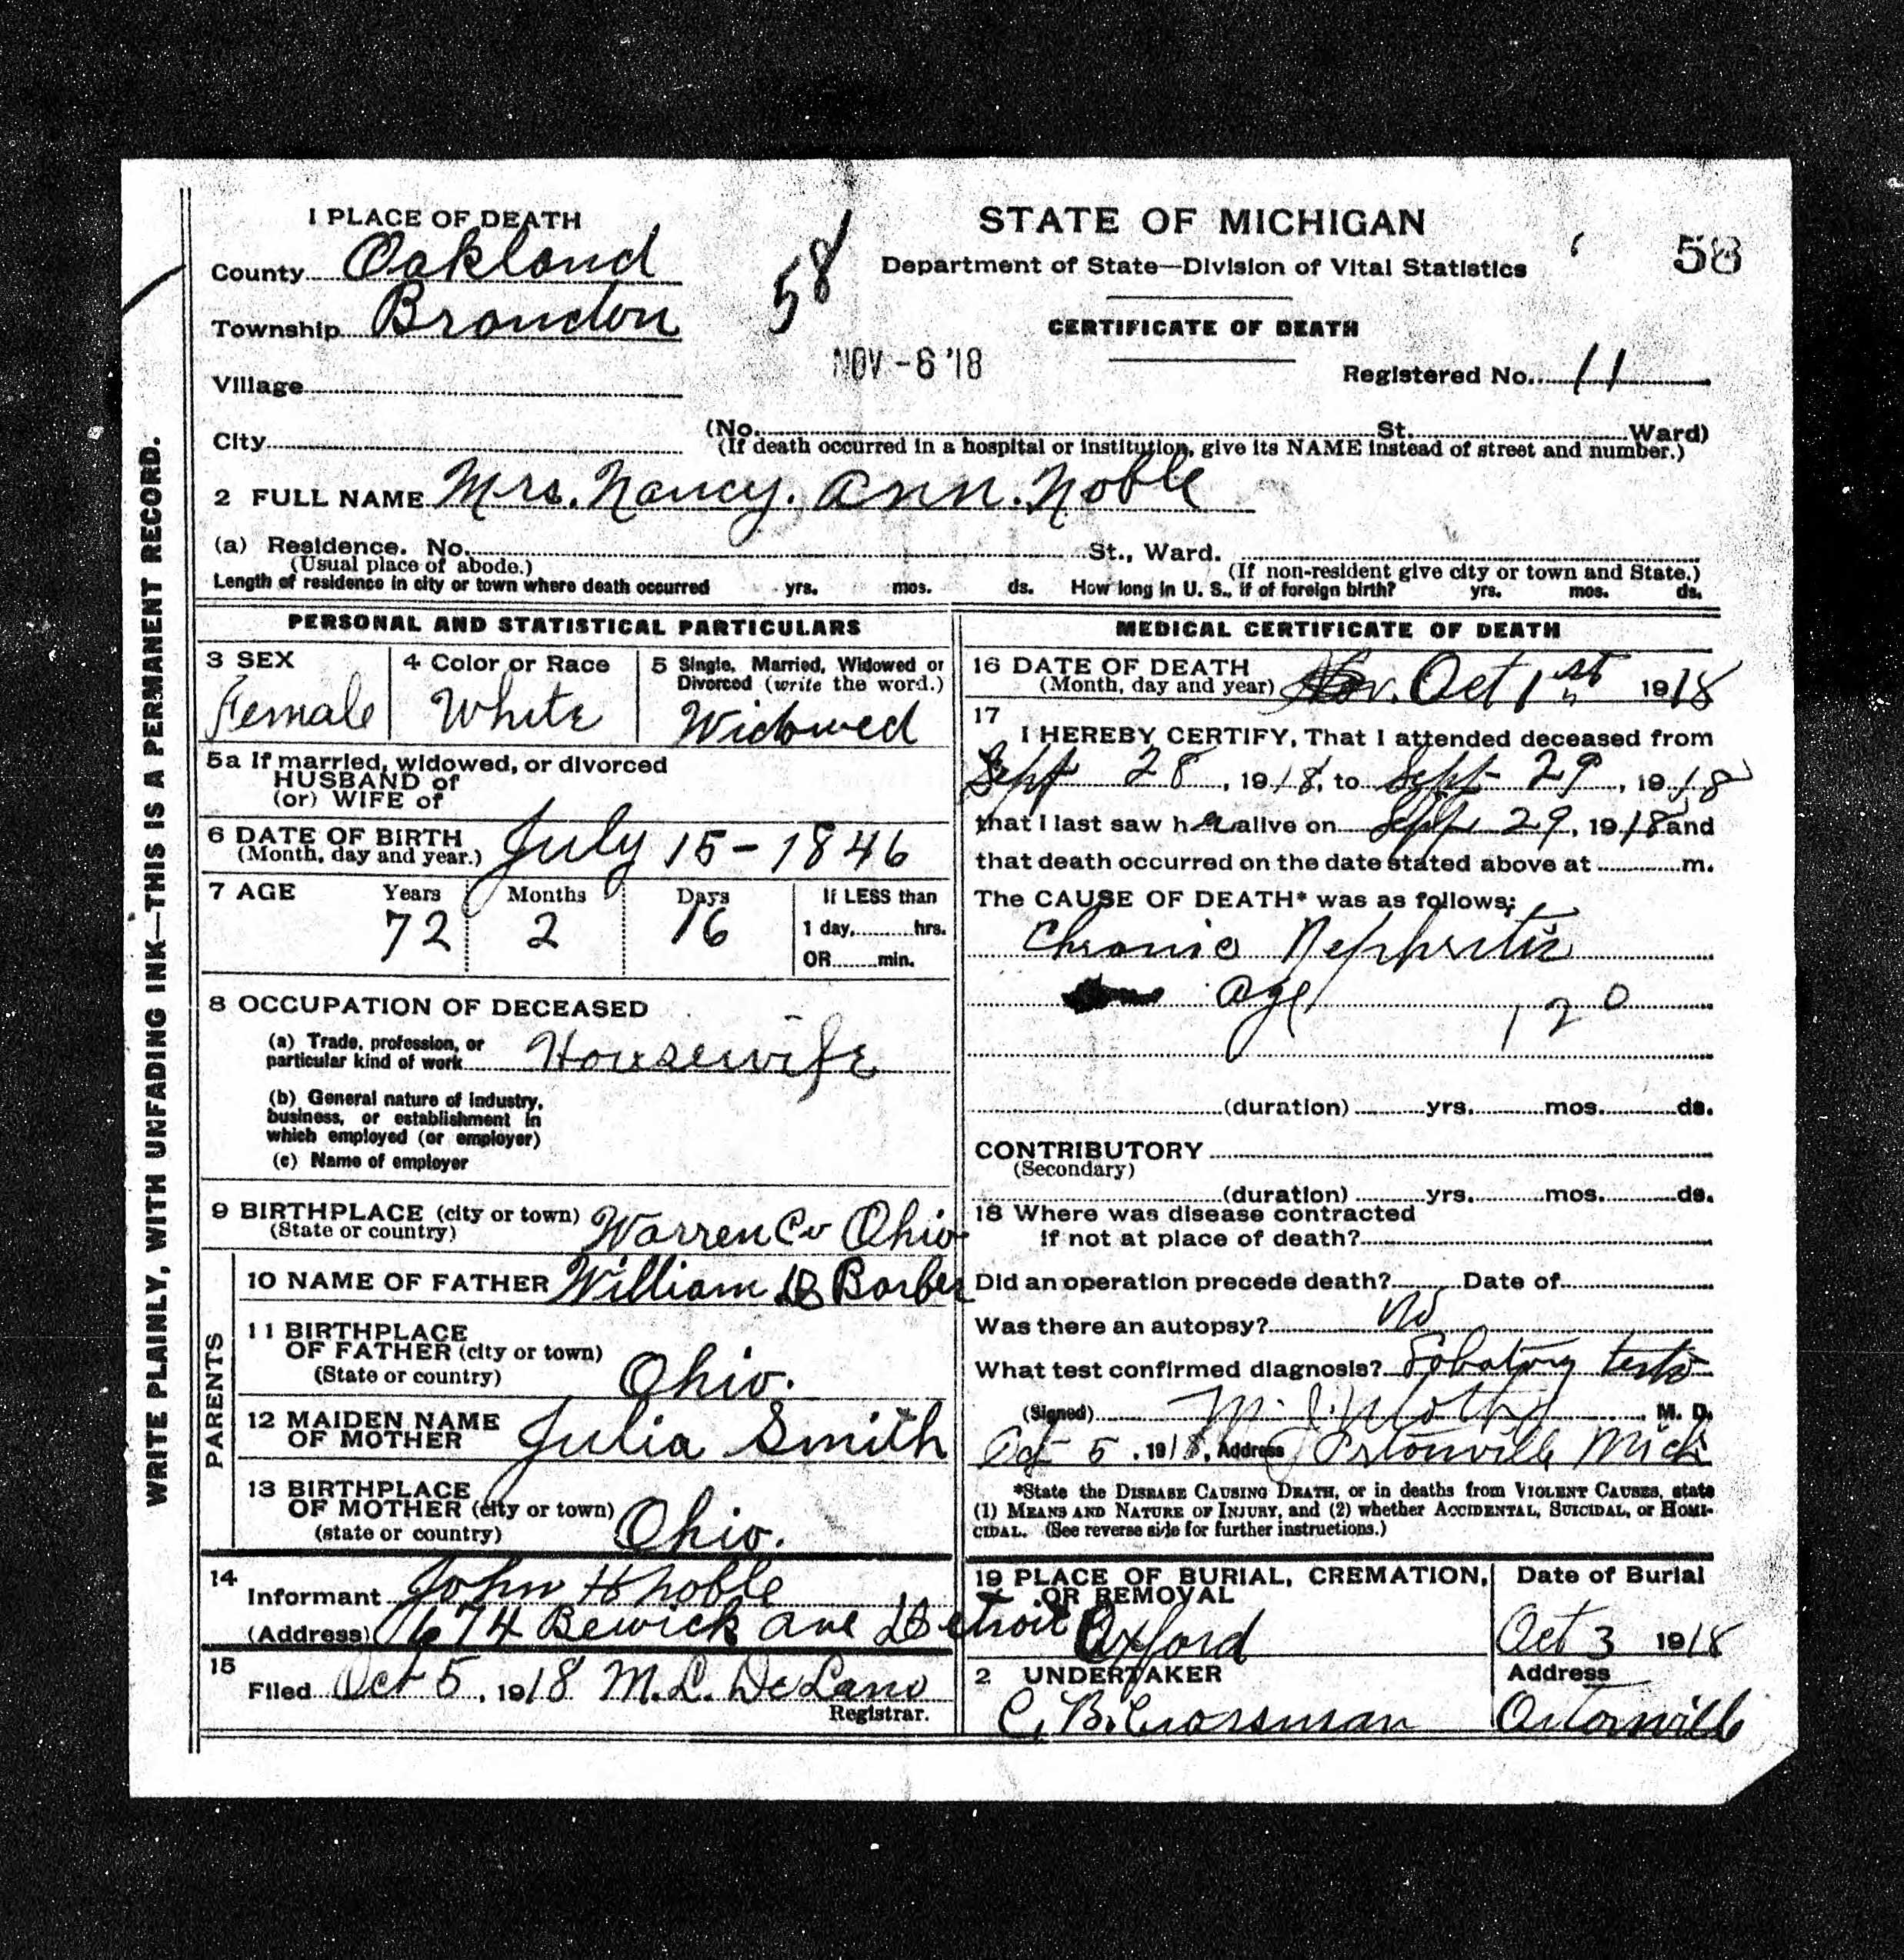 1 PLACE OF DEATH
County Oakland
Township Brandon
Village
City
58
NOV -6 '18
STATE OF MICHIGAN
Department of State—Division of Vital Statistics
58
CERTIFICATE OF DEATH
Registered No. 11
(No. St. Ward)
(If death occurred in a hospital or institution, give its NAME instead of street and number.)
2 FULL NAME Mrs. Nancy. Ann. Noble
(a) Residence. No. St., Ward.
(Usual place of abode.) (If non-resident give city or town and State.)
Length of residence in city or town where death occurred yrs. mos. ds. How long in U. S., if of foreign birth? yrs. mos. ds.
WRITE PLAINLY, WITH UNFADING INK—THIS IS A PERMANENT RECORD.
PERSONAL AND STATISTICAL PARTICULARS
3 SEX
Female
4 Color or Race
White
5 Single, Married, Widowed or
Divorced (write the word.)
Widowed
5a If married, widowed, or divorced
HUSBAND of
(or) WIFE of
6 DATE OF BIRTH
(Month, day and year.) July 15-1846
7 AGE Years Months Days If LESS than
72 2 16 1 day, hrs.
OR min.
8 OCCUPATION OF DECEASED
(a) Trade, profession, or
particular kind of work Housewife
(b) General nature of industry,
business, or establishment in
which employed (or employer)
(c) Name of employer
9 BIRTHPLACE (city or town)
(State or country) Warren Co Ohio
PARENTS
10 NAME OF FATHER William B Barber
11 BIRTHPLACE
OF FATHER (city or town)
(State or country) Ohio.
12 MAIDEN NAME
OF MOTHER Julia Smith
13 BIRTHPLACE
OF MOTHER (city or town)
(state or country) Ohio.
14
Informant John H Noble
(Address) 674 Bewick ave Detroit
15
Filed Oct 5, 1918 M.L. DeLano
Registrar.
MEDICAL CERTIFICATE OF DEATH
16 DATE OF DEATH
(Month, day and year) Oct 1st 1918
17
I HEREBY CERTIFY, That I attended deceased from
Sept 28, 1918, to Sept 29, 1918
that I last saw her alive on Sept 29, 1918 and
that death occurred on the date stated above at m.
The CAUSE OF DEATH* was as follows:
Chronic Nephritis
age 120
(duration) yrs. mos. ds.
CONTRIBUTORY
(Secondary)
(duration) yrs. mos. ds.
18 Where was disease contracted
if not at place of death?
Did an operation precede death? Date of
Was there an autopsy? No
What test confirmed diagnosis? tests
(Signed) M. D.
Oct 5, 1918, Address Ortonville Mich
*State the DISEASE CAUSING DEATH, or in deaths from VIOLENT CAUSES, state
(1) MEANS AND NATURE OF INJURY, and (2) whether ACCIDENTAL, SUICIDAL, or HOMI-
CIDAL. (See reverse side for further instructions.)
19 PLACE OF BURIAL, CREMATION,
OR REMOVAL
Oxford
Date of Burial
Oct 3 1918
2 UNDERTAKER
C. B. Crossman
Address
Ortonville